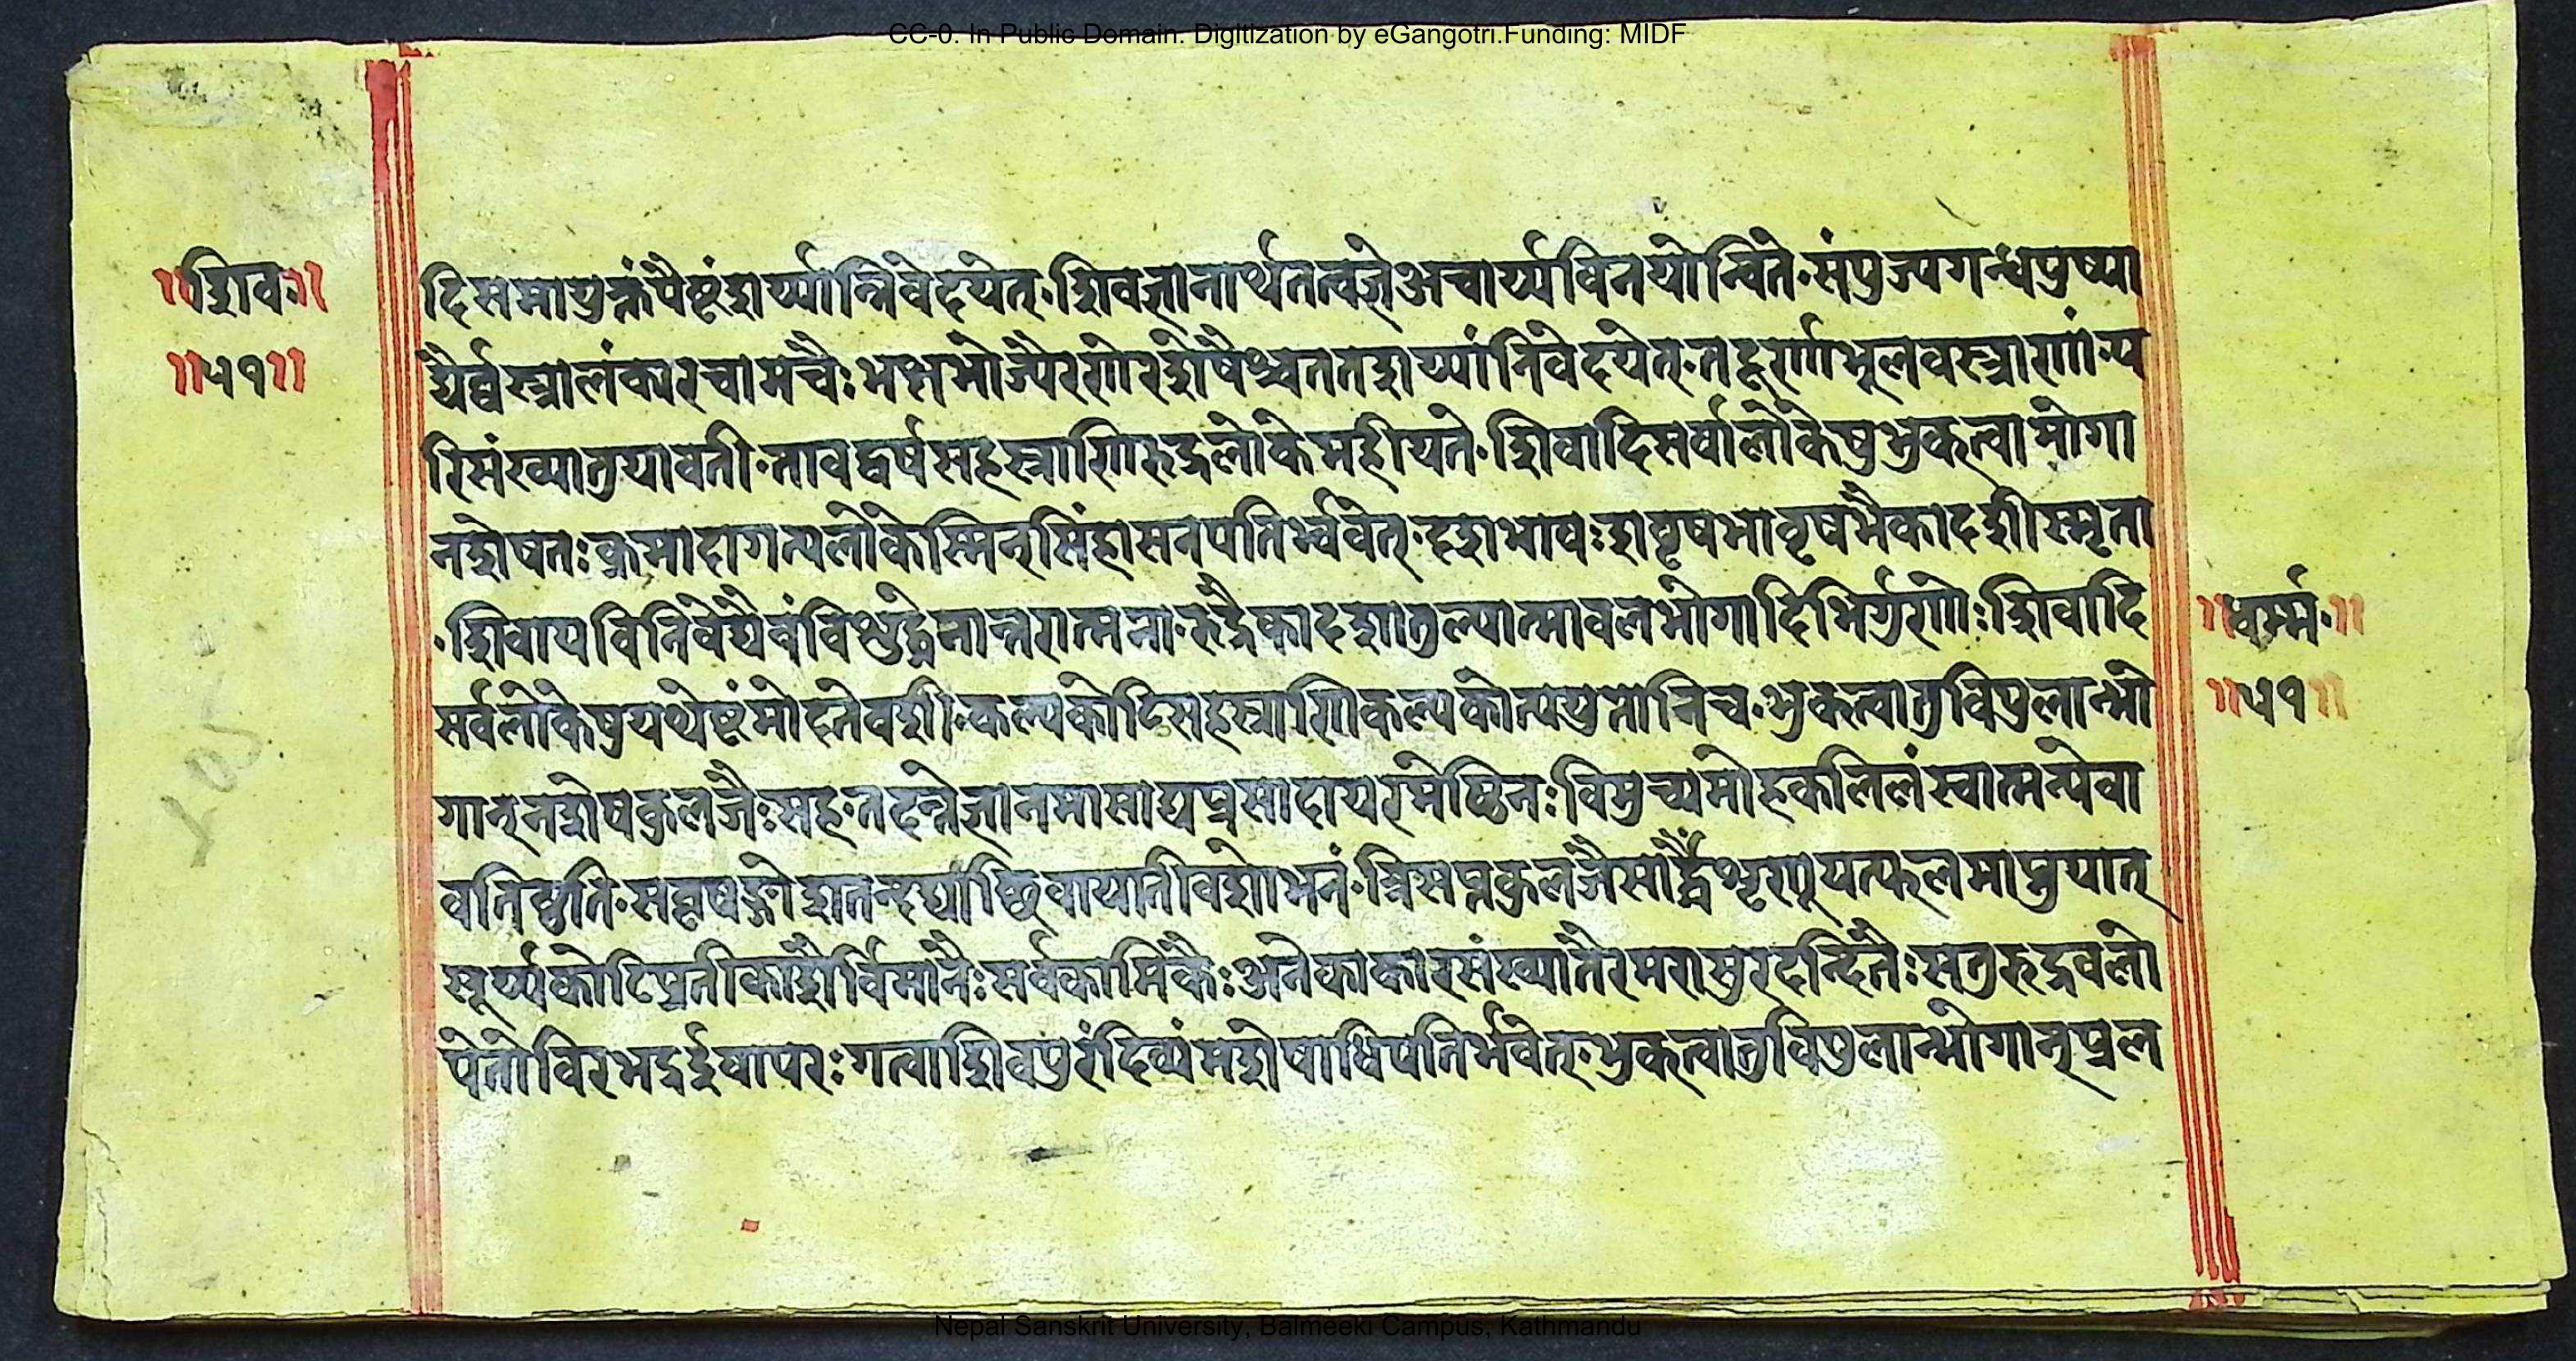 CC-0. In Public Domain. Digitization by eGangotri.Funding: MIDF
॥शिव॥
॥५१॥
दिसमायुक्तंपैष्टंशर्य्यान्निवेदयेत्·शिवज्ञानार्थतत्वज्ञेअचार्य्यविनयोन्विते·संपुज्यगन्धपुष्पा
द्यैर्व्वस्त्रालंकारचामरैः भक्षभोज्यैररणेरशेषैश्चततशय्यांनिवेदयेत्·तद्दूर्णाभूलवस्त्राणां·प
रिसंख्यातुयावती·तावद्वर्षसहस्त्राणिरुद्रलोकेमहीयते·शिवादिसर्वालोकेषुभुकत्वाभोगा
नशेषतःक्रमादागत्यलोकेस्मिन्सिंहासनपतिर्भ्भवेत्·दशभाषःशवृषभावृषभैकादशीस्मृता
·शिवायविनिवेद्यैवंविशुद्धेनान्तरात्मना·रुद्रैकादशतुल्यात्मावलभोगादिभिर्गुणेःशिवादि
सर्वलोकेषुयथेष्टंमोदतेवशी·कल्पकोटिसहस्त्राणिकल्पकोत्पयुतोनिच·भुकत्वातुविपुलान्भो
गान्नशेषकुलजैःसह·तदन्तेज्ञानमासाद्यप्रसादायरमेष्ठिनःविमुच्यमोहकलिलंस्वात्मन्येवा
वतिष्ठति·सवृषङ्गोशतन्दद्याच्छिवायातीविशोभनं·त्रिसप्तकुलजैसार्द्धैशृणूयत्फलमाप्नुयात्
सूर्य्यकोटिप्रतीकाशैर्विमानैःसर्वकामिकैःअनेकाकारसंख्यातैरमरासुरदन्दितैःसतुरुद्रवलो
पेतोविरभद्रर्द्दुवापरःगत्वाशिवपुरंदिव्यंमशेषाधिपतिर्भवेत्·भुकत्वातुविपुलान्भोगान्प्रल
॥धर्म्म·॥
॥५१॥
Nepal Sanskrit University, Balmeeki Campus, Kathmandu